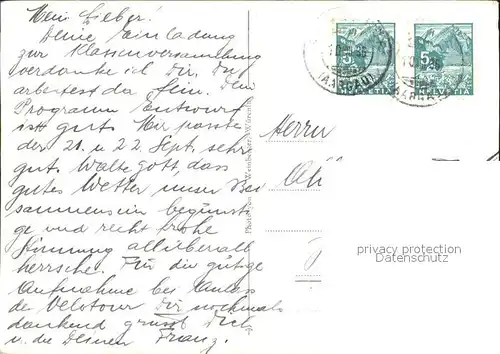 Mein Lieber!
Deine Einladung
zur Klassenversammlung
verdanke ich Dir. Du
arbeitest da fein. Dein
Programm Entwurf
ist gut. Mir passte
der 21. u. 22. Sept. sehr
gut. Walte Gott, dass
gutes Wetter unser Bei
sammensein begünsti
ge und recht frohe
Stimmung allüberall
herrsche. Für die gütige
Aufnahme bei Anlass
der Velotour Dir nochmals
dankend grüsst Dich
u. die Deinen Franz.
5 5
HELVETIA HELVETIA
(AARGAU)
Herrn
privacy protection
Datenschutz